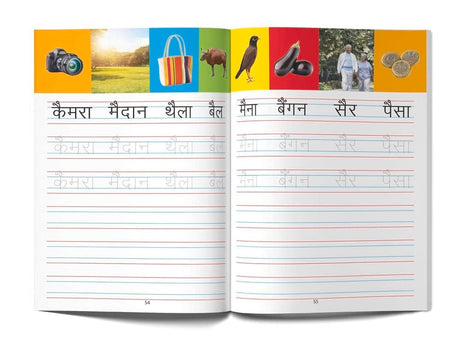 कैमरा मैदान थैला बैल
कैमरा मैदान थैला बैल
कैमरा मैदान थैला बैल
54
मैना बैंगन सैर पैसा
मैना बैंगन सैर पैसा
मैना बैंगन सैर पैसा
55